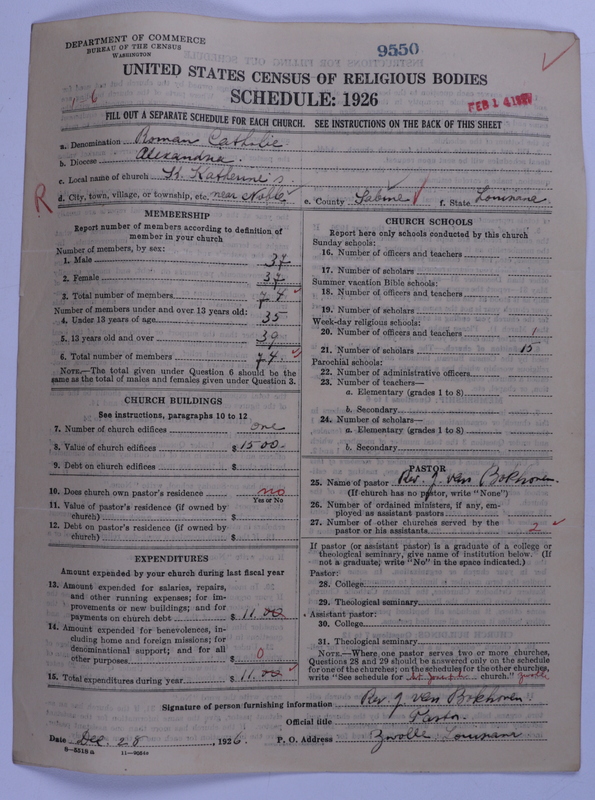 DEPARTMENT OF COMMERCE
BUREAU OF THE CENSUS
WASHINGTON
9550
UNITED STATES CENSUS OF RELIGIOUS BODIES
SCHEDULE: 1926
FEB 14 1927
FILL OUT A SEPARATE SCHEDULE FOR EACH CHURCH. SEE INSTRUCTIONS ON THE BACK OF THIS SHEET
a. Denomination Roman Catholic
b. Diocese Alexandria.
c. Local name of church St. Katherine's
R
d. City, town, village, or township, etc. near Noble e. County Sabine f. State Louisiana
MEMBERSHIP
Report number of members according to definition of member in your church
Number of members, by sex:
1. Male 37
2. Female 37
3. Total number of members 74
Number of members under and over 13 years old:
4. Under 13 years of age 35
5. 13 years old and over 39
6. Total number of members 74
NOTE.—The total given under Question 6 should be the
same as the total of males and females given under Question 3.
CHURCH BUILDINGS
See instructions, paragraphs 10 to 12
7. Number of church edifices one
8. Value of church edifices $ 1500.
9. Debt on church edifices $
10. Does church own pastor's residence no
Yes or No
11. Value of pastor's residence (if owned by
church) $
12. Debt on pastor's residence (if owned by
church) $
EXPENDITURES
Amount expended by your church during last fiscal year
13. Amount expended for salaries, repairs,
and other running expenses; for im-
provements or new buildings; and for
payments on church debt $ 11.00
14. Amount expended for benevolences, in-
cluding home and foreign missions; for
denominational support; and for all
other purposes $ 0
15. Total expenditures during year $ 11.00
CHURCH SCHOOLS
Report here only schools conducted by this church
Sunday schools:
16. Number of officers and teachers
17. Number of scholars
Summer vacation Bible schools:
18. Number of officers and teachers
19. Number of scholars
Week-day religious schools:
20. Number of officers and teachers 1
21. Number of scholars 15
Parochial schools:
22. Number of administrative officers
23. Number of teachers—
a. Elementary (grades 1 to 8)
b. Secondary
24. Number of scholars—
a. Elementary (grades 1 to 8)
b. Secondary
PASTOR
25. Name of pastor Rev. J. van Bokhoven.
(If church has no pastor, write "None")
26. Number of ordained ministers, if any, em-
ployed as assistant pastors
27. Number of other churches served by the
pastor or his assistants 2
If pastor (or assistant pastor) is a graduate of a college or
theological seminary, give name of institution below. (If
not a graduate, write "No" in the space indicated.)
Pastor:
28. College
29. Theological seminary
Assistant pastor:
30. College
31. Theological seminary
NOTE.—Where one pastor serves two or more churches,
Questions 28 and 29 should be answered only on the schedule
for one of the churches; on the schedules for the other churches,
write "See schedule for St. Joseph church." Zwolle
Signature of person furnishing information Rev. J. van Bokhoven
Official title Pastor.
Date Dec. 28, 1926. P. O. Address Zwolle Louisiana
8-5518 a 11-9054a